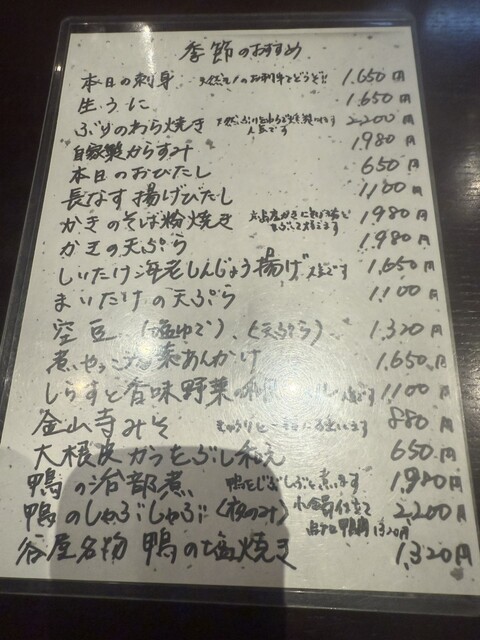 季節のおすすめ
本日の刺身 1.650円
生うに 1.650円
ぶりのわら焼き 2.200円
自家製からすみ 1980円
本日のおひたし 650円
長なす揚げびたし 1100円
かきのそば粉焼き 1980円
かきの天ぷら 1.980円
しいたけ海老しんじょう揚げ 人気です 1.650円
まいたけの天ぷら 1.100円
空豆 (塩ゆで)、(天ぷら) 1.320円
煮やっこ 素あんかけ 1.650円
しらすと香味野菜の 人気です 1100円
金山寺みそ きゅうりと一緒に 880円
大根皮かつをぶし和え 650円
鴨の治部煮 鴨をじぶじぶと煮ます 1,980円
鴨のしゃぶしゃぶ (夜のみ) 小鍋仕立て 2,200円
1320円
谷屋名物 鴨の塩焼き 1,320円